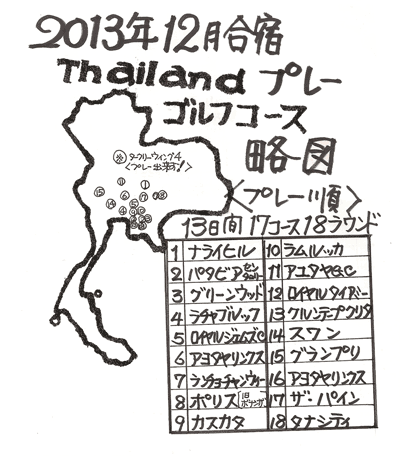 2013年12月合宿
Thailand プレー
ゴルフコース
略図
<プレー出来ず!>
<プレー順>
13日間 17コース 18ラウンド
1 ナライヒル
2 パタビア
3 グリーンウッド
4 ラチャブルック
5 ロイヤルジェムズC
6 アヨタヤリンクス
7 ランチョチャンウィー
8 ポリス
9 カスカタ
10 ラムルッカ
11 アユタヤG.C
12 ロイヤルタイアーミー
13 クルンテープクリタ
14 スワン
15 グランプリ
16 アヨタヤリンクス
17 ザ・パイン
18 タナシティ